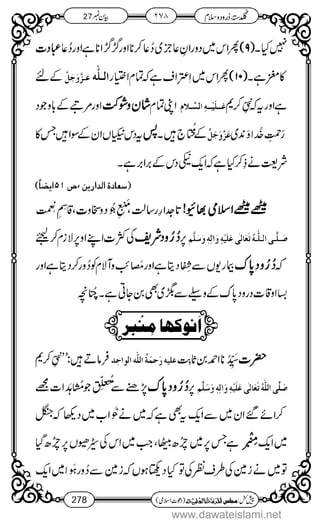 گلدستۂ درود وسلام ۲۷۸ بیان نمبر 27
کیا۔ (۹) پھر اس میں دورانِ عاجزی دُعا کرنا اور گڑگڑانا ہے اور دُعا عبادت کا مغز ہے۔ نہیں
(۱۰) پھر اس میں اعتراف ہے کہ تمام اختیار اللہ عَزَّوَجَلَّ کے لئے
ہے اور یہ کہ نبی کریم عَلَیْہِ السَّلَام اپنی تمام شان وشوکت اور مرتبے کے باوجود
رَحمتِ خُداوندی عَزَّوَجَلَّ کے محتاج ہیں۔ پس یہ دس نیکیاں ان کے سوا ہیں جس کا
شریعت نے ذِکر کیا ہے کہ ایک نیکی دس کے برابر ہے۔
(سعادة الدارین ، ص ۵۱ ایضاً)
میٹھے میٹھے اسلامی بھائیو! تاجدارِ رسالت، مَنبعِ جُود وسخاوت، قاسمِ نعمت
صَلَّی اللہُ تَعَالٰی عَلَیْہِ وَاٰلِہٖ وَسَلَّم پر دُرُود شریف کی کثرت اپنے اوپر لازم کر لیجئے
کہ دُرُودِ پاک بیماریوں سے شِفا دیتا ہے اور مَصائب وآلام کو دُور کر دیتا ہے اور
بسا اوقات دُرود پاک کے وسیلے سے بگڑی بھی بن جاتی ہے۔ چُنانچہ
انوکھا مِنْبر
حضرت سَیِّدُنا احمد بن ثابت علیہ رَحْمَۃُ اللہِ الواحِد فرماتے ہیں: ”نبی کریم
صَلَّی اللہُ تَعَالٰی عَلَیْہِ وَاٰلِہٖ وَسَلَّم پر دُرُودِ پاک پڑھنے سے مُتعلِّق جو مُشاہدات مجھے
کرائے گئے ان میں سے ایک یہ بھی ہے کہ میں نے خواب میں دیکھا کہ جنگل
میں ایک مِنبر ہے جس پر میں چڑھ بیٹھا، جب میں اس کی سیڑھیوں پر چڑھ گیا
تو میں نے زمین کی طرف نظر کی تو کیا دیکھتا ہوں کہ میں زمین سے دُور ہوا میں ایک
278
www.dawateislami.net